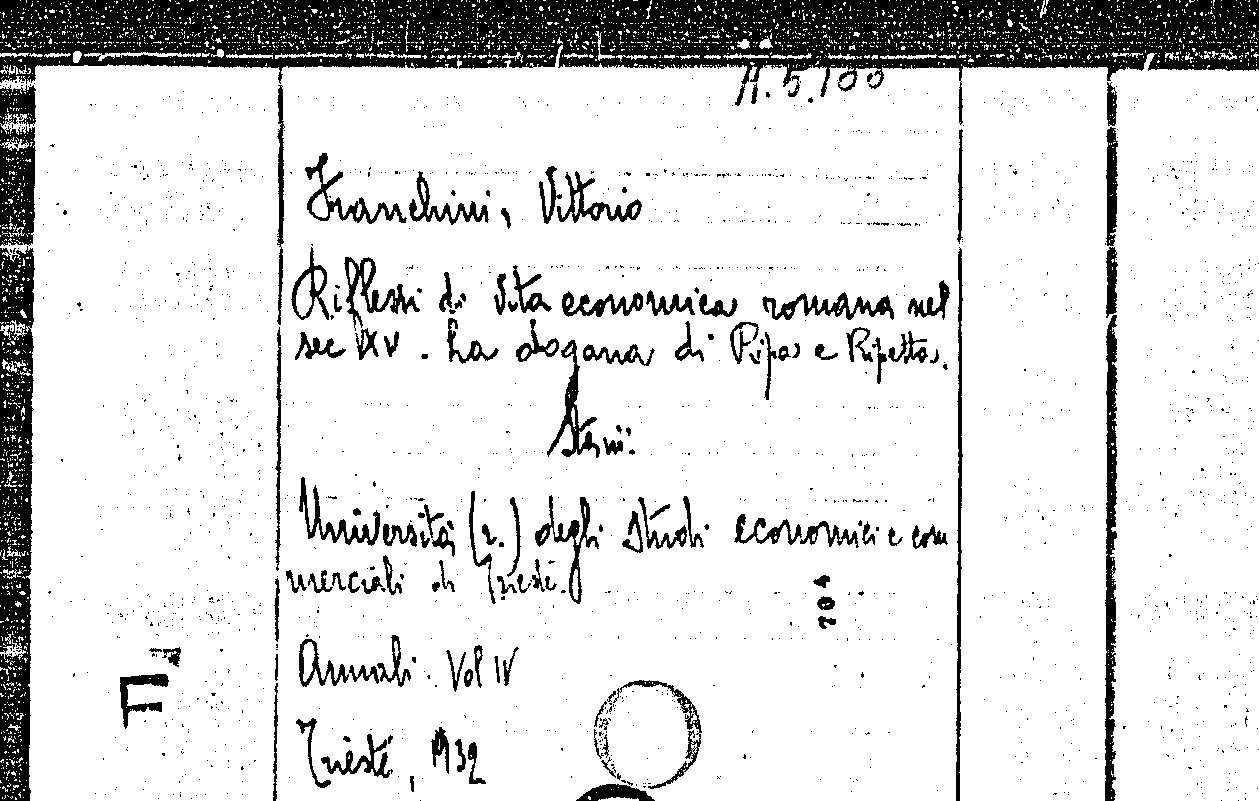 A.5.100
Franchini, Vittorio
Riflessi di vita economica romana nel
sec XV. La dogana di Ripa e Ripetta.
Stà in:
Università (r.) degli Studi economici e com
merciali di Trieste.
704
Annali. Vol IV
F
Trieste, 1932